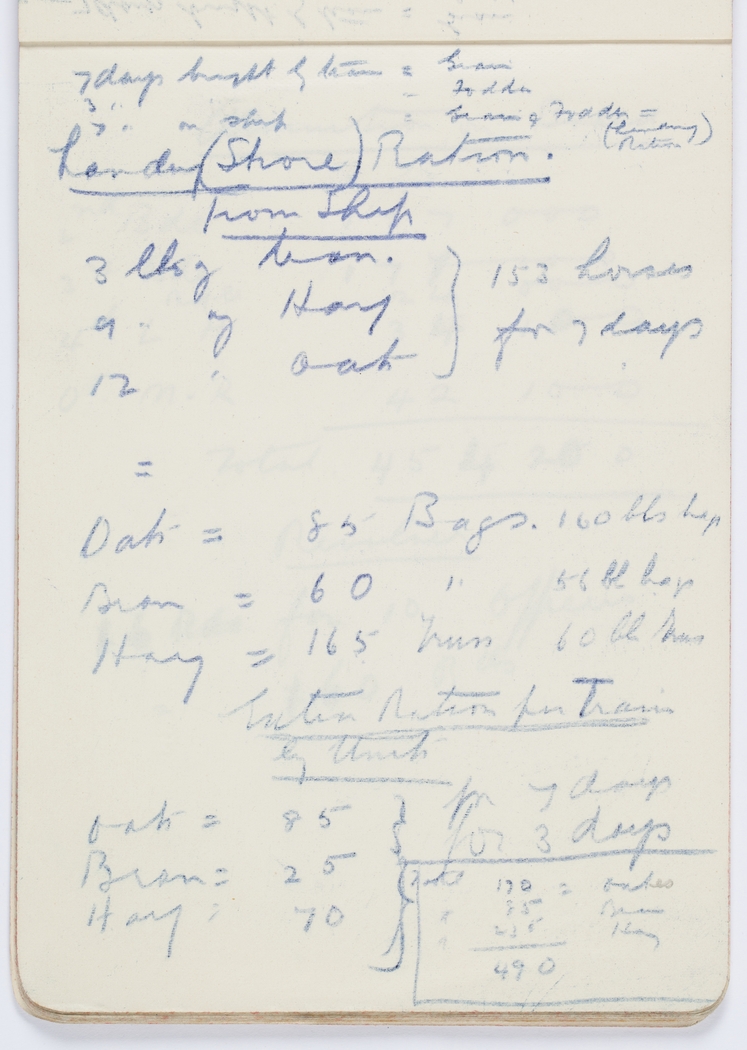 7 days brought by train = Grain
3 " = Fodder
7 " on ship = Grain & Fodder =
(Landing Ration)
Landing (Shore) Ration.
from Ship
3 lbs of bran.
9 " of Hay } 153 horses
12 " oats for 7 days
=
Oats = 85 Bags. 160 lbs bags
Bran = 60 " 56 lb bags
Hay = 165 Truss 60 lb Truss
Extra Ration per Train
by Units
for 7 days
oats = 85
for 3 days
Bran = 25
Hay = 70
Total 170 = oates
" 85 Bran
" 235 Hay
490